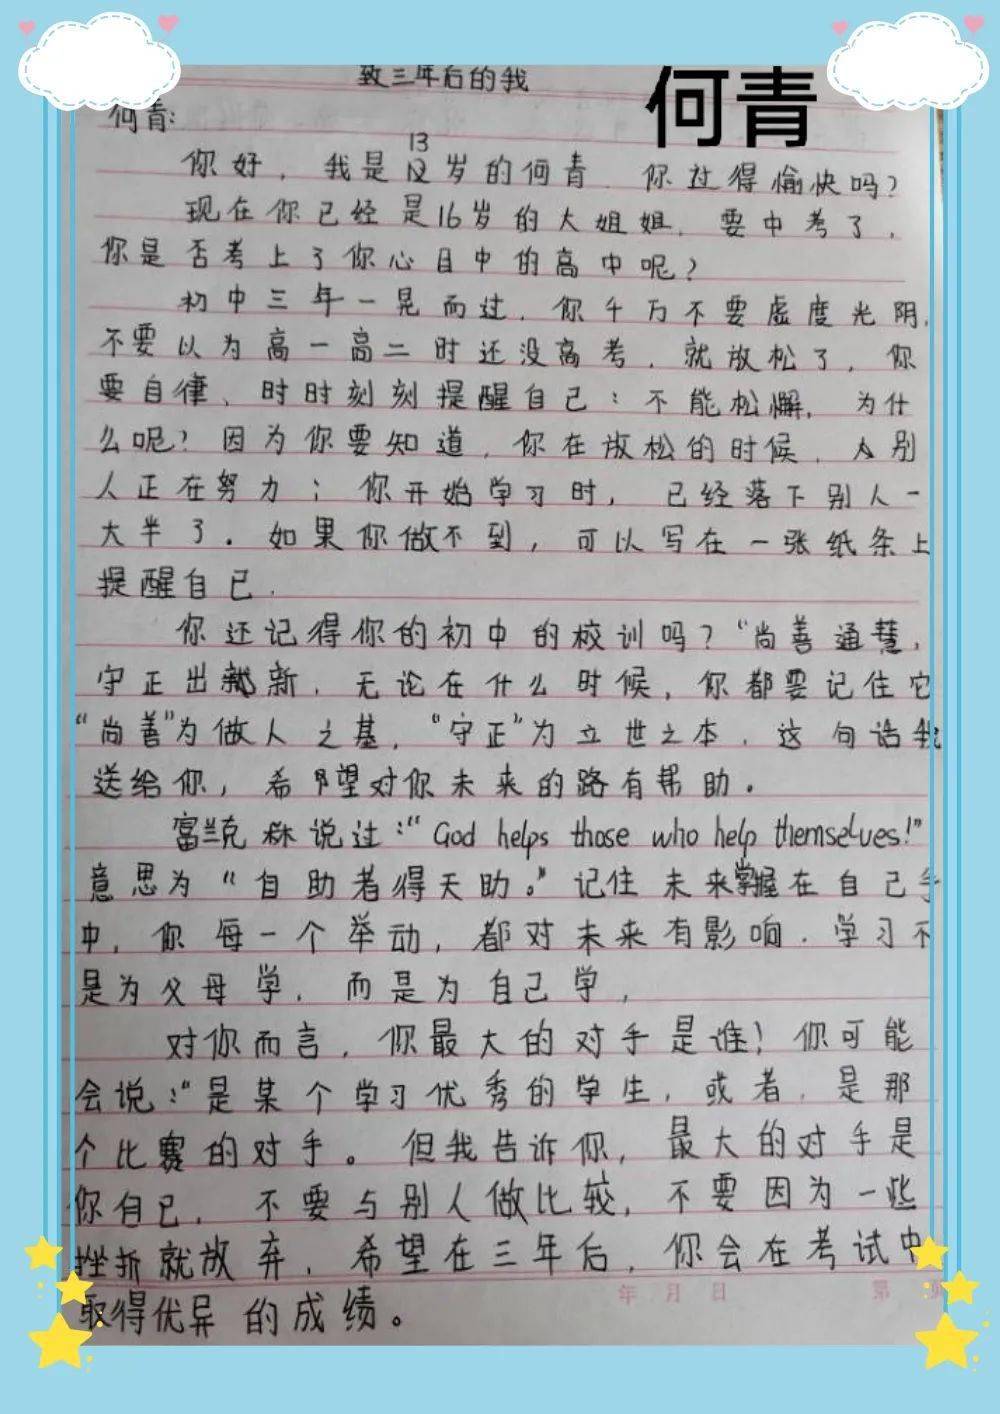 致三年后的我
何青
何青:
13
你好，我是岁的何青.你过得愉快吗?
现在你已经是16岁的大姐姐.要中考了,
你是否考上了你心目中的高中呢?
初中三年一晃而过.你千万不要虚度光阴.
不要以为高一高二时还没高考.就放松了.你
要自律、时时刻刻提醒自己:不能松懈.为什
么呢?因为你要知道.你在放松的时候.别
人正在努力;你开始学习时,已经落下别人一
大半了。如果你做不到,可以写在一张纸条上
提醒自己.
你还记得你的初中的校训吗?“尚善通慧,
守正出新.无论在什么时候,你都要记住它
“尚善”为做人之基,“守正”为立世之本.这句话我
送给你,希望对你未来的路有帮助。
富兰克林说过:“God helps those who help themselves!”
意思为“自助者得天助。”记住未来掌握在自己手
中,你每一个举动,都对未来有影响.学习不
是为父母学.而是为自己学,
对你而言,你最大的对手是谁!你可能
会说:“是某个学习优秀的学生,或者,是那
个比赛的对手。但我告诉你,最大的对手是
你自己.不要与别人做比较,不要因为一些
挫折就放弃.希望在三年后,你会在考试中
取得优异的成绩。
年 月 日 第